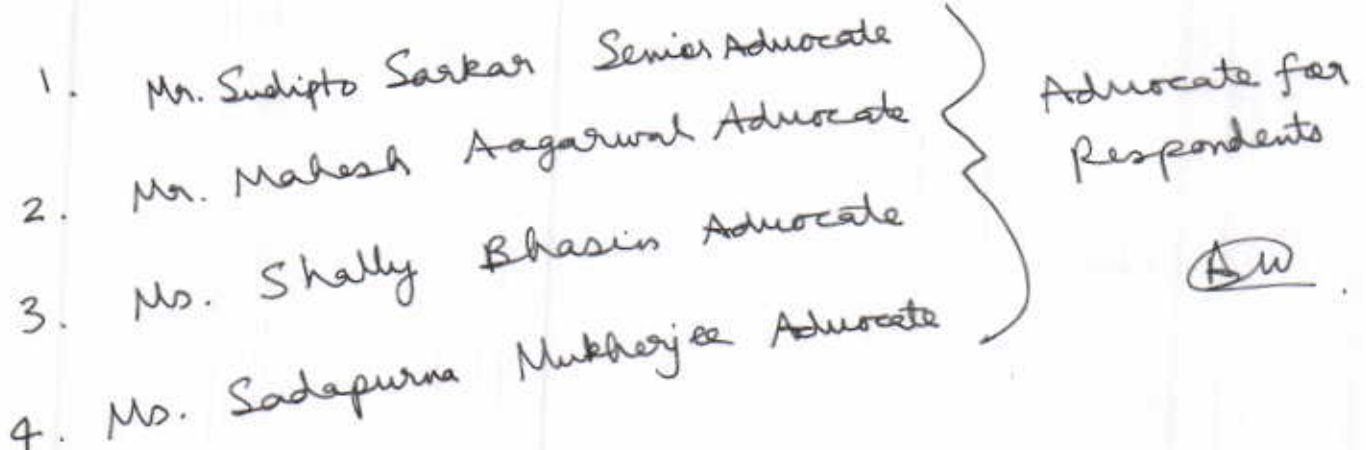 1. Mr. Sudipto Sarkar Senior Advocate
2. Mr. Mahesh Aagarwal Advocate
3. Ms. Shally Bhasin Advocate
4. Ms. Sadapurna Mukherjee Advocate
Advocate for
Respondents